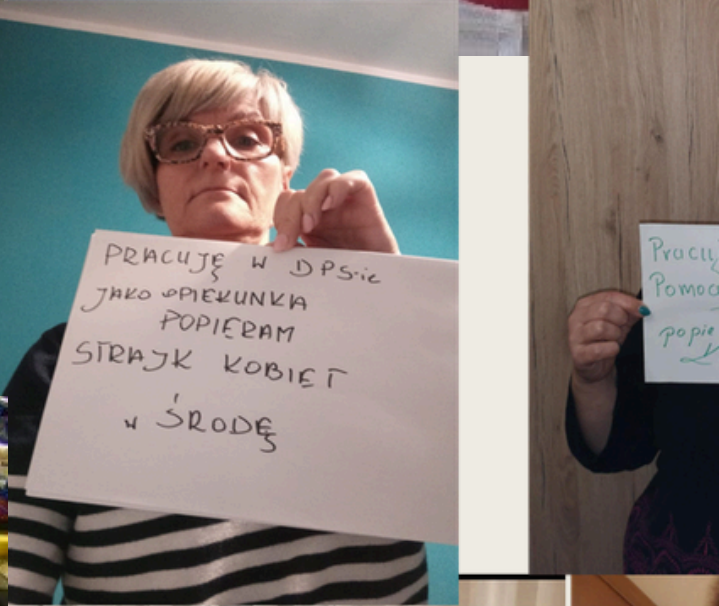 PRACUJĘ W DPS-ie
JAKO OPIEKUNKA
POPIERAM
STRAJK KOBIET
w ŚRODĘ
Pracuj
Pomoc
popie